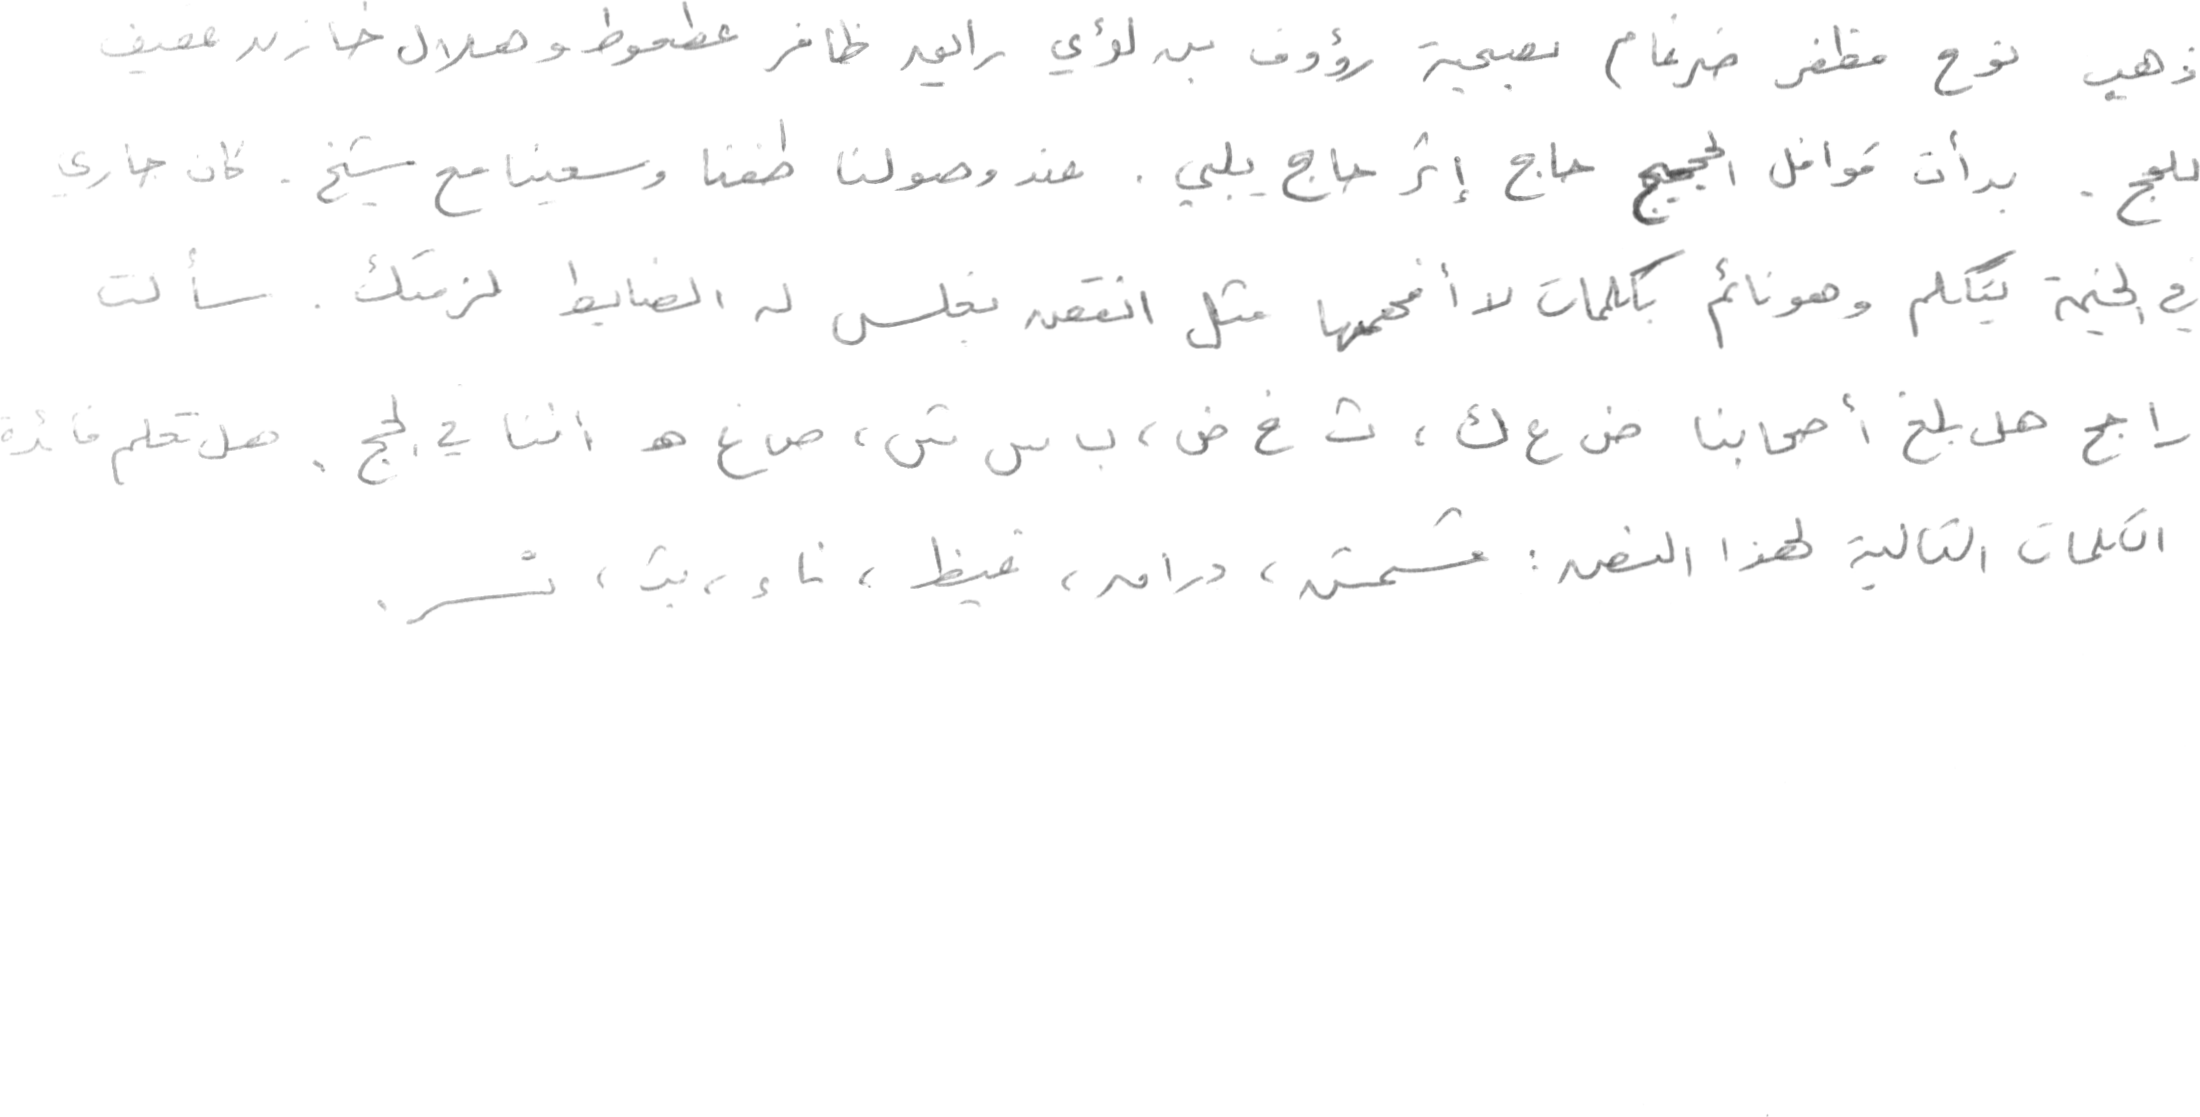 ذهب نوح مظفر ضرغام بصحبة رؤوف بن لؤي رايق ظافر عطعوط وهلال خازن عفيف
للحج. بدأت قوافل الحجيج حاج إثر حاج يلبي. عند وصولنا طفنا وسعينا مع شيخ. كان جاري
في الخيمة يتكلم وهو نائم بكلمات لا أفهمها مثل انتقص بغلس له الضابط لزمتك. سألت
راجح هل بلغ أصحابنا ض ع ك، ث خ ض، ب س ش، ص غ هـ اننا في الحج. هل تعلم فائدة
الكلمات التالية لهذا النص: مشمش، درامن، غيظ، ناء، بث، تسر.